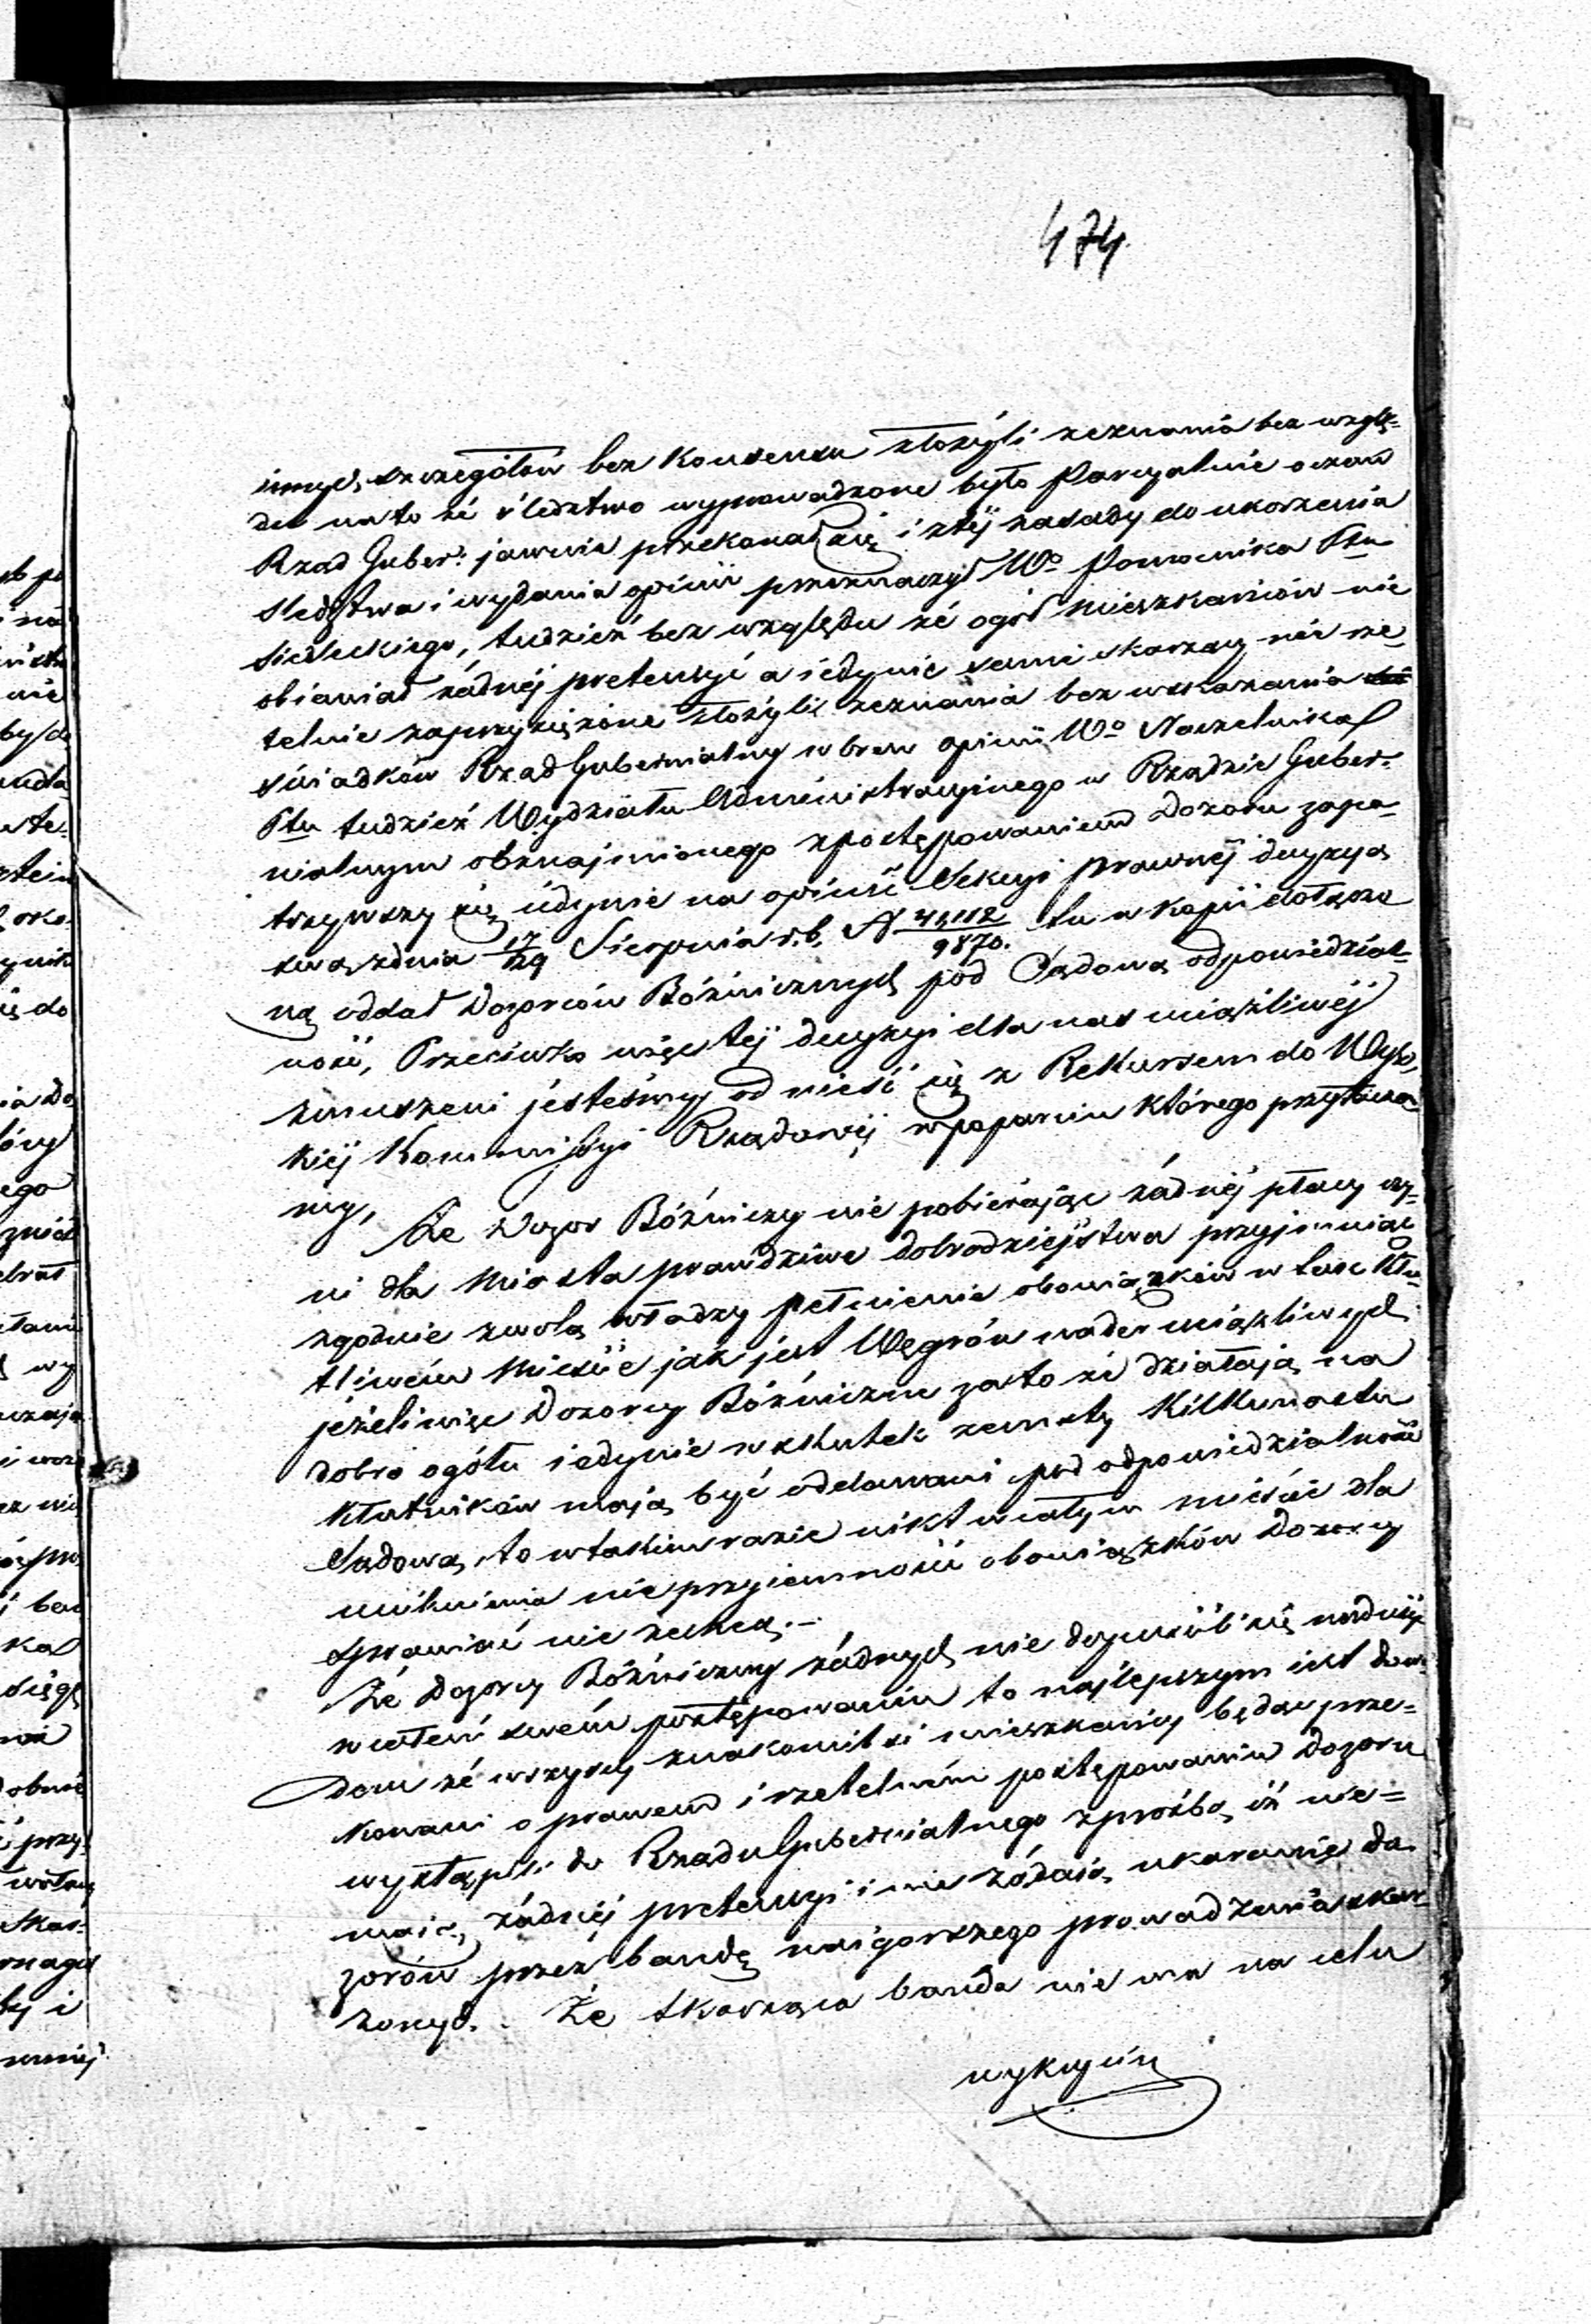 474
innych szczegółów bez Konsensu złożyli zeznania bez wzglę=
du na to że śledztwo wyprowadzone było Parcyalnie o czem
Rząd Guber: jawnie przekonał się i z tej zasady do ukończenia
Śledztwa i wydania opinii przeznaczył Wo Pomocnika Ptu
Siedleckiego, tudzież bez względu że ogół Mieszkańców nie
obiawiał żadnéj pretensyi a iedynie sami skarzący nie rze
telnie zaprzysiężone złożyli zeznania bez wskazania
świadków Rząd Gubernialny wbrew opinii Wo Naczelnika
Ptu tudzież Wydziału Administracyinego w Rządzie Guber=
nialnym obznajmionego z postępowaniem Dozoru zapa=
trzywszy się iedynie na opinię Sekcyi prawnéj decyzyą
swą z dnia 17/29 Sierpnia r.b. N 41,112/9870. tu w kopii dołączo
ną oddał Dozorców Bóżniczych pod Sądową odpowiedzial=
ność, Przeciwko więc téj decyzyi dla nas uciążliwéj
zmuszeni jesteśmy odnieść się z Rekursem do Wyso
kiéj Kommissyi Rządowéj w poparciu którego przytacza
my,
Że Dozor Bóżniczy nie pobierając żadnéj płacy czy=
ni dla Miasta prawdziwe dobrodziejstwa przyjmuiąc
zgodnie z wolą władzy pełnienie obowiązków w tak Kłu=
tliwém Mieście jak jest Węgrów nader uciążliwych
jeżeli więc Dozorcy Bóżniczni za to że działają na
dobro ogółu iedynie w skutek zemsty Kilkunastu
Kłutników mają być oddawani pod odpowiedzialność
Sądową, to w takim razie nikt w całym mieście dla
uniknienia nieprzyiemności obowiązków Dozorcy
sprawiać nie zechcą.–
Że Dozorcy Bóżniczny żadnych nie dopuścili się nadużyć
w całem swém postępowaniu to najlepszym iest dowo
dem że wszyscy znakomitsi mieszkańcy będąc prze=
konani o prawem i rzetelném postępowaniu Dozoru
wystąpili do Rządu Gubernialnego z prośbą iż nie=
maią żadnéj pretensyi i nie żądaią ukarania Do
zorów przez bandę naigorszego prowadzenia skar
zonych. Że skarząca banda nie ma na celu